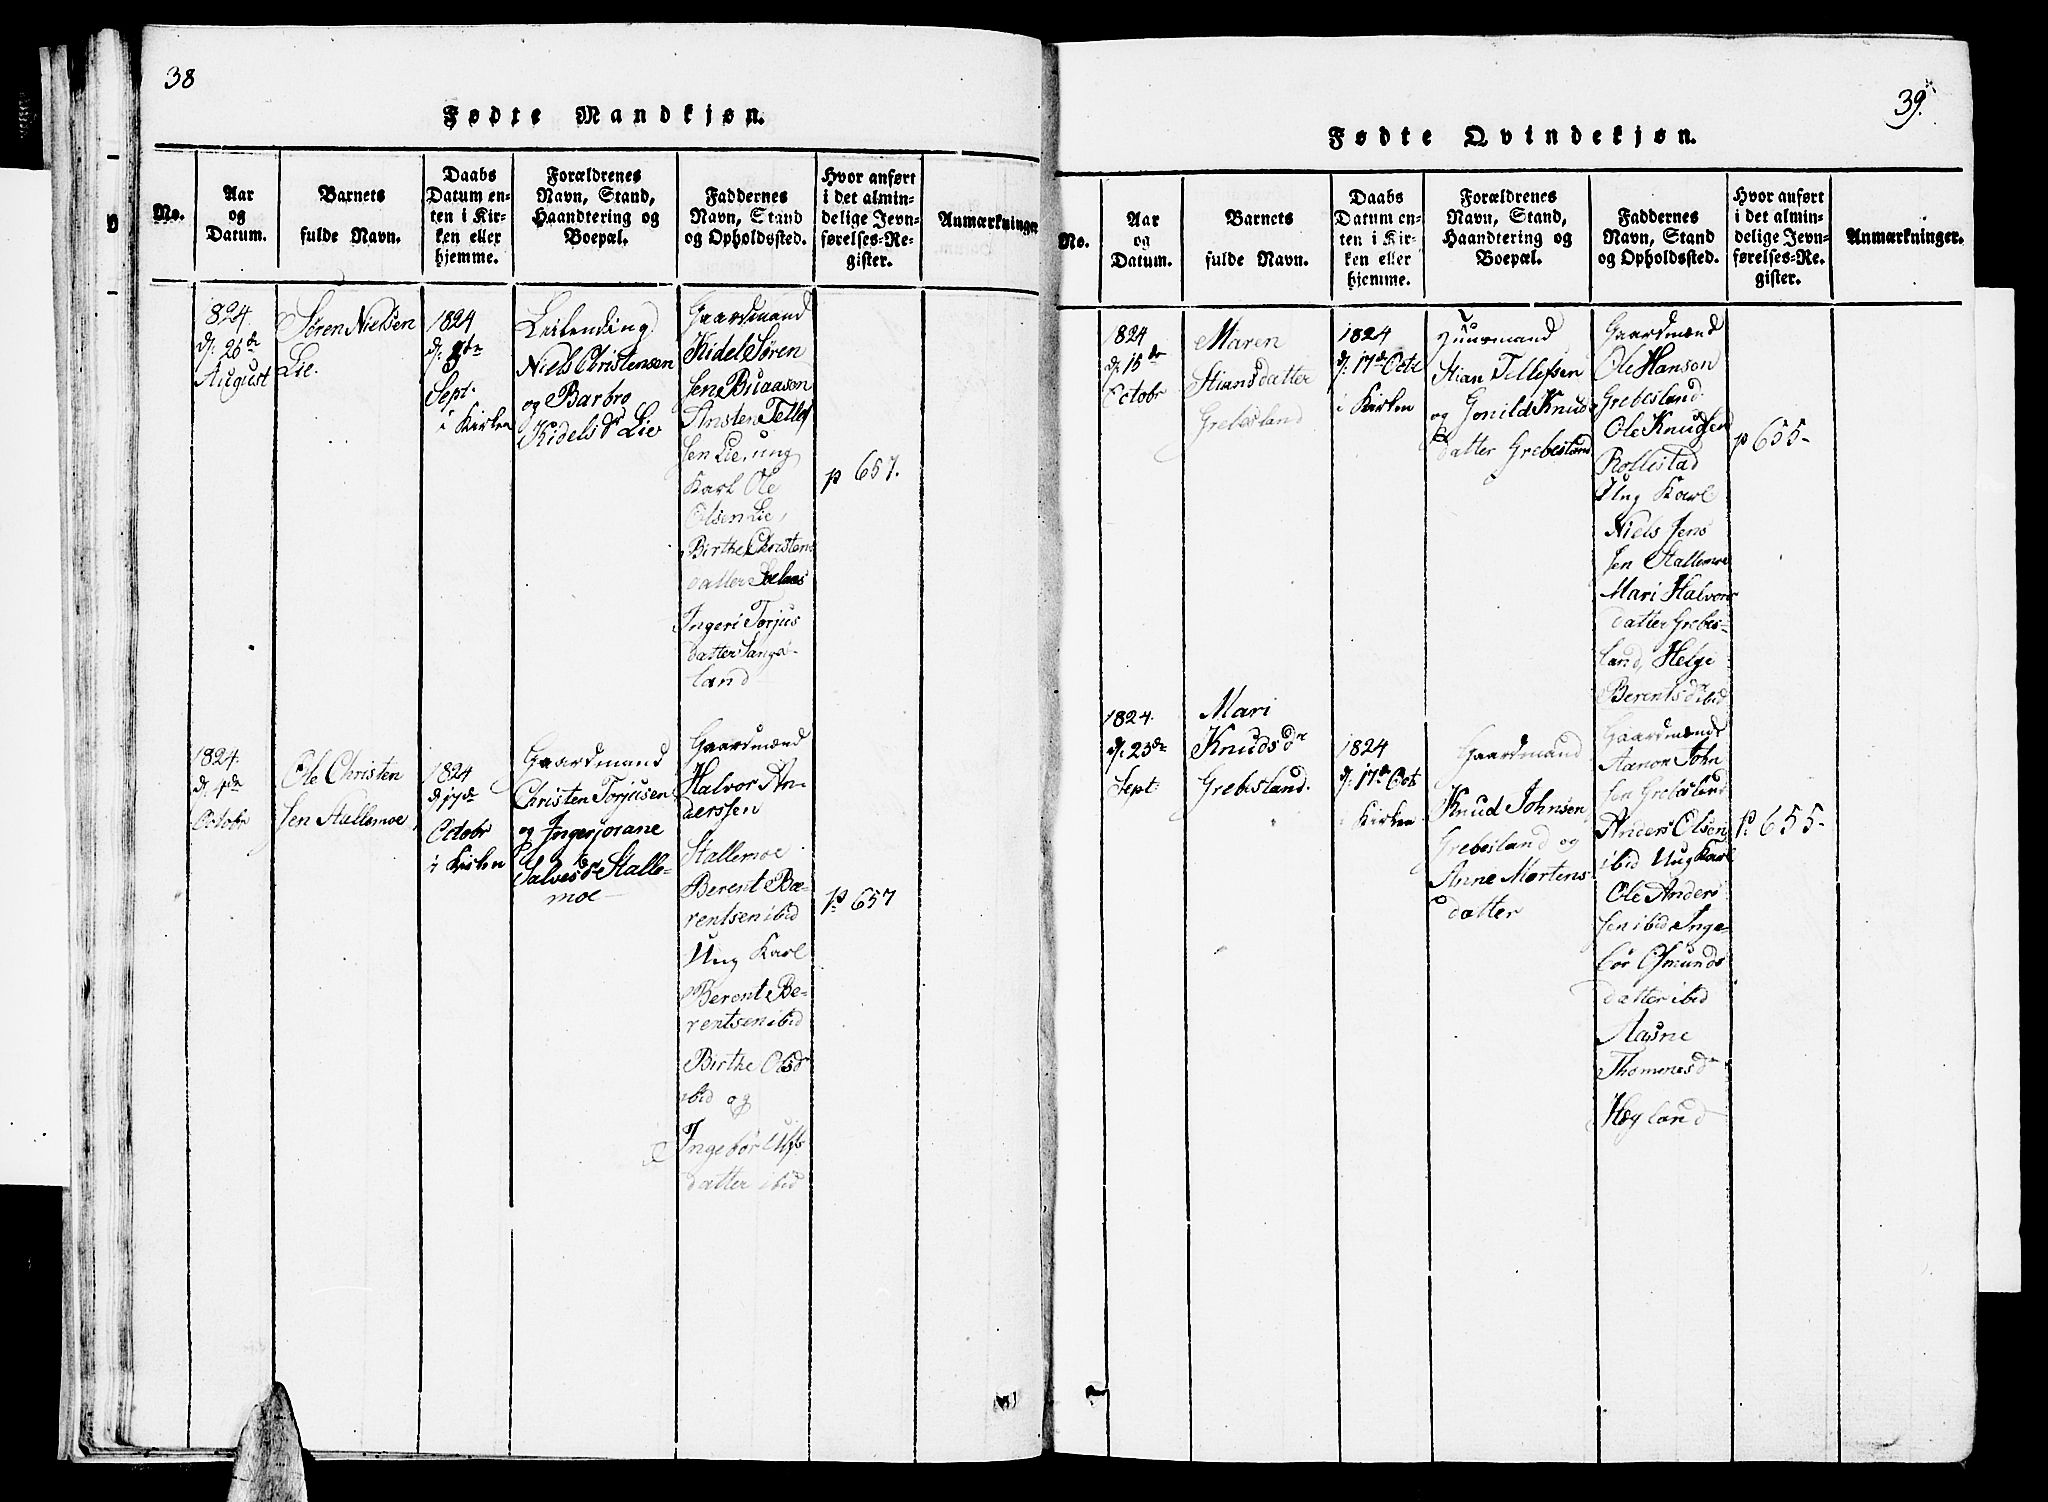 38
Fødte Mandkjøn.
No.
Aar
og
Datum.
Barnets
fulde Navn.
Daabs
Datum en-
ten i Kir-
ken eller
hjemme.
Forældrenes
Navn, Stand,
Haandtering og
Boepæl.
Faddernes
Navn, Stand
og Opholdssted.
Hvor anført
i det almin-
delige Jevn-
førelses-Re-
gister.
Anmærkninger
1824
d. 26de
August
Søren Nielsen
Lie.
1824
d.
Sept.
i Kirken
Leilending
Niels Christensen
og Barbro
Kidels dr Lie
Gaardmænd
Kidel Søren
sen Buaasen
Ansten Tellef
sen Lie, ung
Karl Ole
Olsen Lie,
Birthe Christens
datter
Ingeri Torjus
datter Langs-
land
p 657.
1824.
d.
Octobr
Ole Christen
sen Stallemoe
1824
d 17de
Octobr
i Kirken
Gaardmand
Christen Torjusen
og Ingerjorane
Salves dr Stalle-
moe
Gaardmænd
Halvor An-
derssen
Stallemoe
Berent Be-
rentsen ibid
Ung Karl
Berent Be-
rentsen ibid
Birthe Olsdr
ibid og
Ingebor
datter ibid
p 657
39.
Fødte Qvindekjøn.
No.
Aar
og
Datum.
Barnets
fulde Navn.
Daabs
Datum en-
ten i Kir-
ken eller
hjemme.
Forældrenes
Navn, Stand,
Haandtering og
Boepæl.
Faddernes
Navn, Stand
og Opholdssted.
Hvor anført
i det almin-
delige Jevn-
førelses-Re-
gister.
Anmærkninger.
1824
d. 15de
Octobr
Maren
Stiansdatter
Grebesland
1824
d. 17de Octr
i Kirken
Huusmand
Stian Tellefsen
og Gonild Knuds
datter Grebesland
Gaardmænd
Ole Hanson
Grebesland.
Ole Knudsen
Rollestad
Ung Karl
Niels Jens
sen Stallemoe
Mari Halvors
datter Grebes-
land, Helge
Berentsdr ibid
p 655-
1824.
d. 23de
Sept.
Mari
Knudsdr
Grebesland.
1824
d. 17de Oct
i Kirken
Gaardmand
Knud Johnsen
Grebesland og
Anne Mortens
datter
Gaardmænd
Aanon John
sen Grebesland
Anders Olsen
ibid Ung Karl
Ole Anders
sen ibid Inge-
bor Osmunds
datter ibid
Aasne
Thommesdr
Høyland
p. 655-